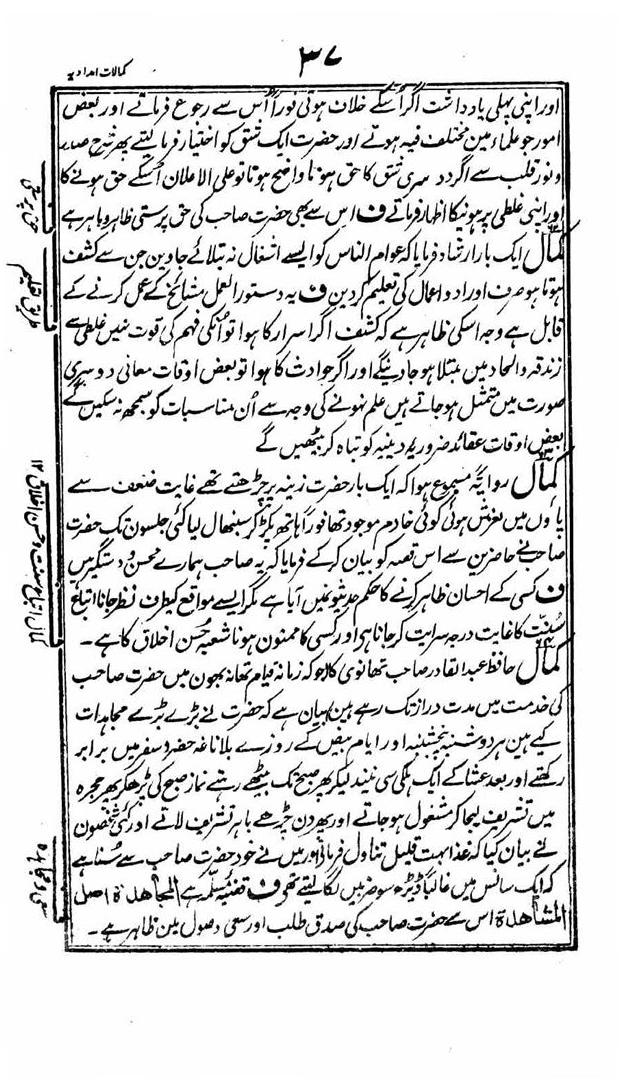 ۳۷
کمالات امدادیہ
اور اپنی پہلی یادداشت اگر اُسکے خلاف ہوتی فوراً اُس سے رجوع فرماتے اور بعض
امور جو علماء مین مختلف فیہ ہوتے اور حضرت ایک شق کو اختیار فرما لیتے پھر شرح صدر
و نور قلب سے اگر دوسری شق کا حق ہونا واضح ہوتا تو علی الاعلان اُسکے حق ہونے کا
اور اپنی غلطی پر ہونیکا اظہار فرماتے ف اس سے بھی حضرت صاحب کی حق پرستی ظاہر و باہر ہے
حق پرستی
کمال ایک بار ارشاد فرمایا کہ عوام الناس کو ایسے اشغال نہ بتلائے جاوین جن سے کشف
ہوتا ہو صرف اوراد و اعمال کی تعلیم کر دین ف یہ دستور العمل مشائخ کے عمل کرنے کے
طریق تعلیم
قابل ہے وجہ اسکی ظاہر ہے کہ کشف اگر اسرار کا ہوا تو اُنکی فہم کی قوت نہیں غلطی سے
زندقہ و الحاد مین مبتلا ہو جاوینگے اور اگر حوادث کا ہوا تو بعض اوقات معانی دوسری
صورت میں متمثل ہو جاتے ہیں علم نہونے کی وجہ سے اُن مناسبات کو سمجھ نہ سکیں گے
بعض اوقات عقائد ضروریہ دینیہ کو تباہ کر بیٹھیں گے
کمال روایۃً مسموع ہوا کہ ایک بار حضرت زینہ پر چڑھتے تھے غایت ضعف سے
پاؤں میں لغزش ہوئی کوئی خادم موجود تھا فوراً ہاتھ پکڑ کر سنبھال لیا کئی جلسون تک حضرت
صاحب نے حاضرین سے اس قصہ کو بیان کر کے فرمایا کہ یہ صاحب ہمارے محسن و دستگیر ہیں
ف کسی کے احسان ظاہر کرنے کا حکم حدیثونمیں آیا ہے مگر ایسے مواقع کیطرف نظر جانا اتباع
سُنّت کا غایت درجہ سرایت کر جانا ہی اور کسی کا ممنون ہونا شعبہ حُسن اخلاق کا ہے۔
کمال اتباع سنت و حسن اخلاق ۱۲
کمال حافظ عبد القادر صاحب تھانوی کا جو کہ زمانۂ قیام تھانہ بھون میں حضرت صاحب
کی خدمت میں مدت دراز تک رہے ہین بیان ہے کہ حضرت نے بڑے بڑے مجاہدات
کیے ہین ہر دوشنبہ پنجشنبہ اور ایام بیض کے روزے بلا ناغہ حضر و سفر میں برابر
رکھتے اور بعد عشا کے ایک ہلکی سی نیند لیکر پھر صبح تک بیٹھے رہتے نماز صبح کی پڑھکر پھر حجرہ
میں تشریف لیجا کر مشغول ہو جاتے اور پھر دن چڑھے باہر تشریف لاتے اور کئی شخصون
نے بیان کیا کہ غذا بہت قلیل تناول فرماتے اور میں نے خود حضرت صاحب سے سُنا ہے
کہ ایک سانس میں غالباً ڈیڑھ سو ضربیں لگا لیتے تھے ف قضیۂ مسلّم ہے المجاهدة اصل
المشاهدة اس سے حضرت صاحب کی صدق طلب اور سعی وصول مین ظاہر ہے۔
سعی و مجاہدہ